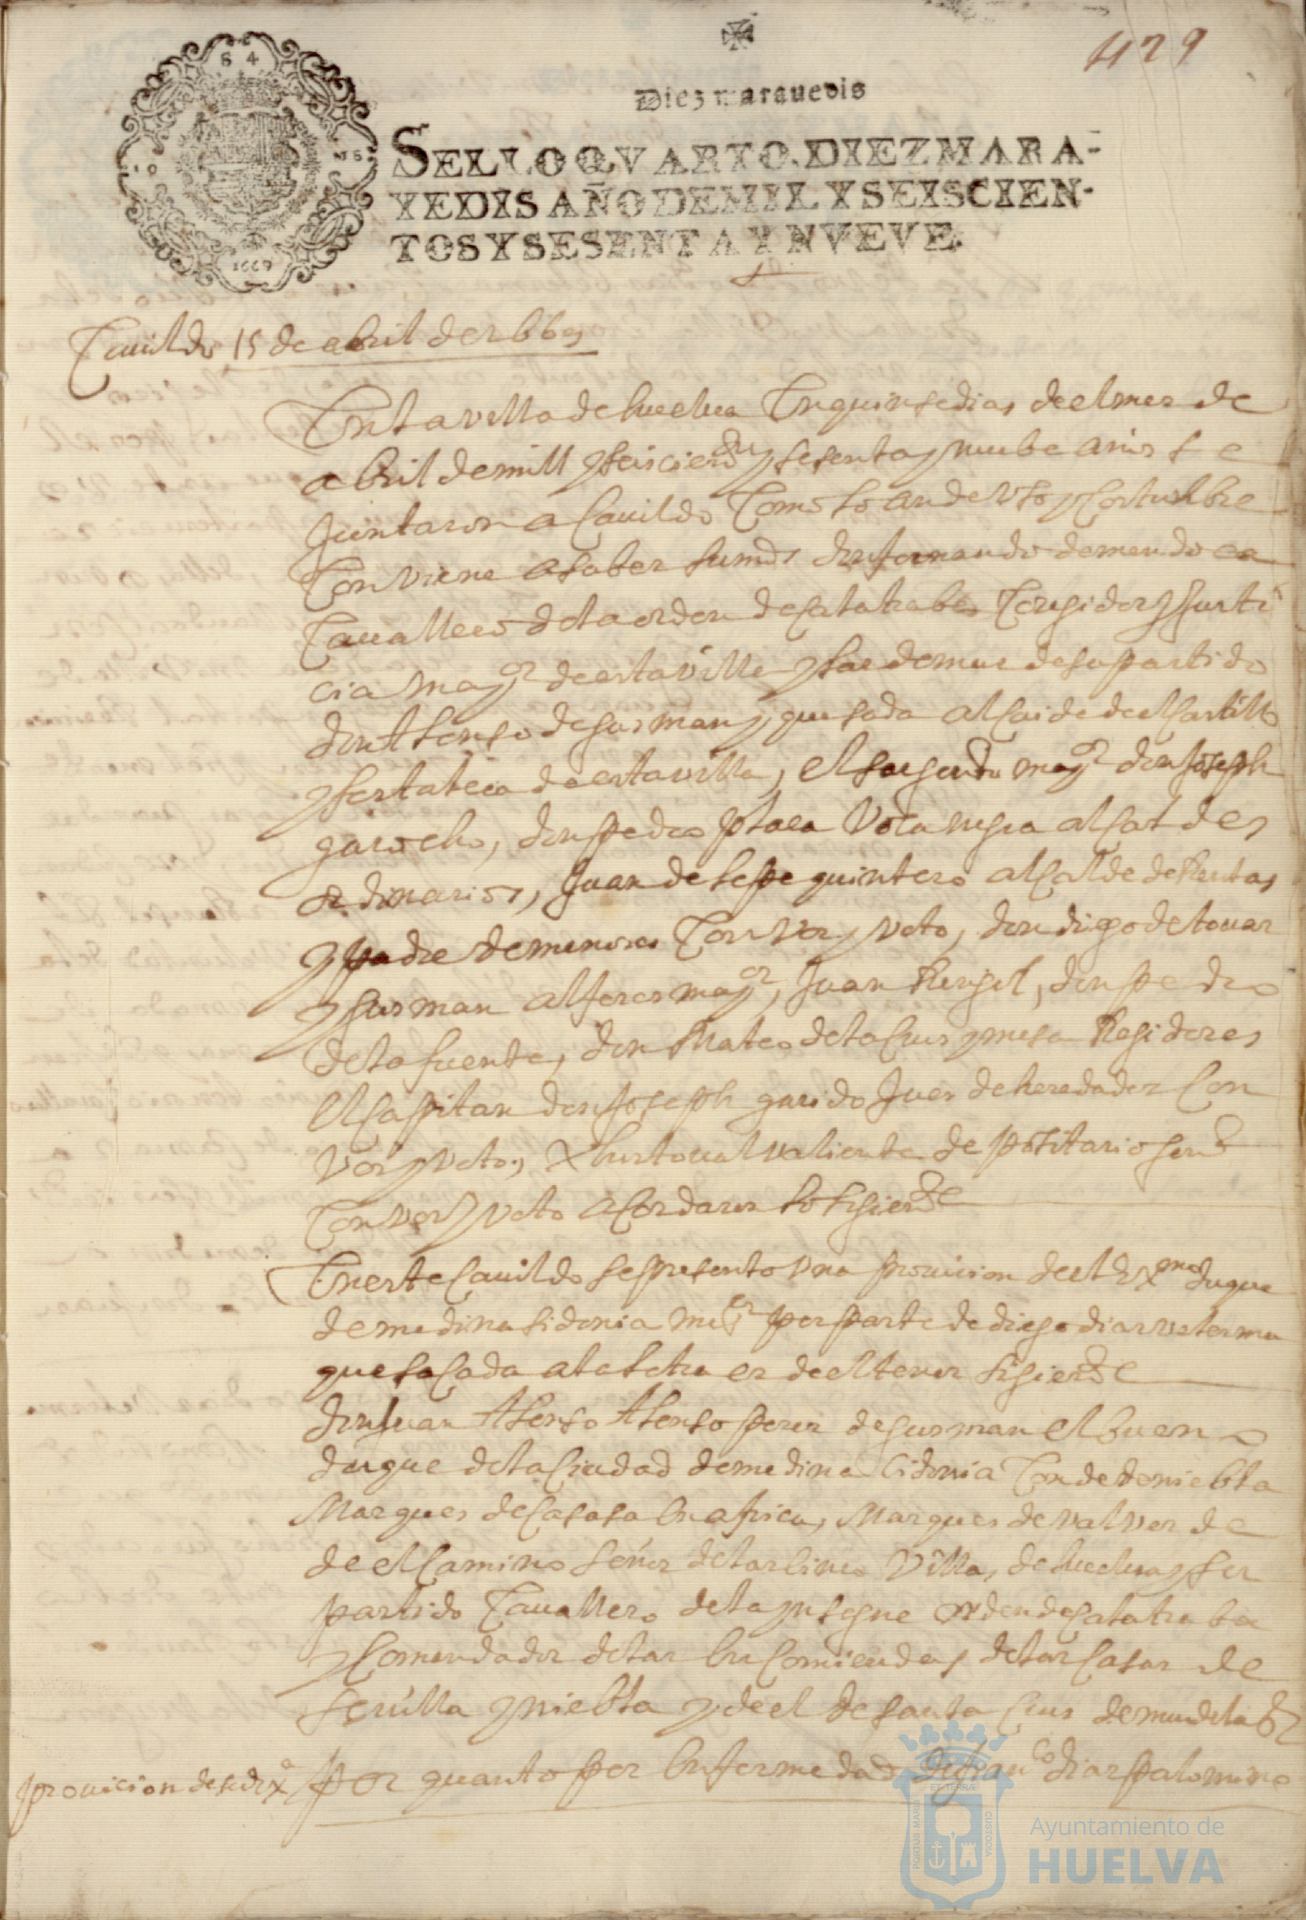 479
Diez marauedis
SELLO QVARTO, DIEZ MARA-
VEDIS AÑO DE MIL Y SEISCIEN-
TOS Y SESENTA Y NVEVE.
S 4
1669
Cauildo 15 de abril de 1669
En la villa de huelua En quinse dias de el mes de
abril de mill y seiscientos y sesenta y nuebe años se
Juntaron a Cauildo Como lo an de Vso y Costunbre
Conviene a saber sumd don fernando de mendoca
Cauallero de la orden de Calatraba Coregidor y Justi
cia mayor de esta villa y las demas de su partido
don Alonso de gusman y quesada alcaide de el Castillo
y fortaleca de esta villa, el sargento mayor don Joseph
garocho, don pedro plaça alcaldes
ordinarios, Juan de lepe quintero alcalde de Rentas
y padre de menores Con vos y voto, don diego de touar
y gusman alferes mayor, Juan Rangel, don pedro
de la fuente, don Mateo de la Crus y mesa Regidores
el Capitan don Joseph garido Jues de heredades Con
vos y voto, Xhristoual valiente depositario genl
Con vos y voto acordaron lo siguiente
En este Cauildo se presento vna provicion de el Exmo duque
de medina sidonia mi sr por parte de diego dias
que sacada a la letra es de el tenor siguiente
don Juan Alonso Alonso peres de gusman el bueno
duque de la Ciudad de medina Cidonia Conde de niebla
Marques de Casasa en africa, Marques de valverde
de el Camino señor de las Villa, de huelua y su
partido Cauallero de la ynsigne orden de Calatraba
y Comendador de las encomiendas de las Casas de
seuilla y niebla y de el de santa Crus de mudela &
provicion de su exa
por quanto por enfermedad de franco dias palomino
PORTUS MARIS ET TERRAE CUSTODIA
Ayuntamiento de
HUELVA